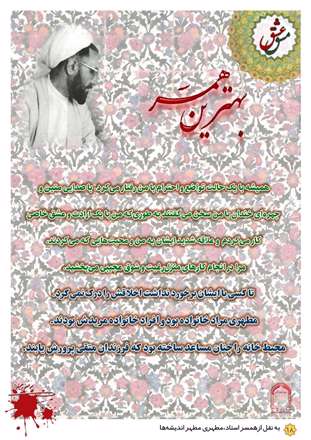 مشق عشق
بهترین همسر
همیشه با یک حالت تواضع و احترام با من رفتار می‌کرد. با صدایی متین و
چهره‌ای خندان با من سخن می‌گفتند به طوری‌که من با یک ارادت و عشق خاصی
کار می‌کردم و علاقه شدید ایشان به من و محبت‌هایی که می‌کردند،
مرا در انجام کارهای منزل رغبت و شوق عجیبی می‌بخشید.
تا کسی با ایشان برخورد نداشت اخلاقش را درک نمی‌کرد.
مطهری مراد خانواده بود و افراد خانواده مریدش بودند.
محیط خانه را چنان مساعد ساخته بود که فرزندان متقی پرورش یابند.
۱۸ به نقل از همسر استاد، مطهری مطهر اندیشه‌ها